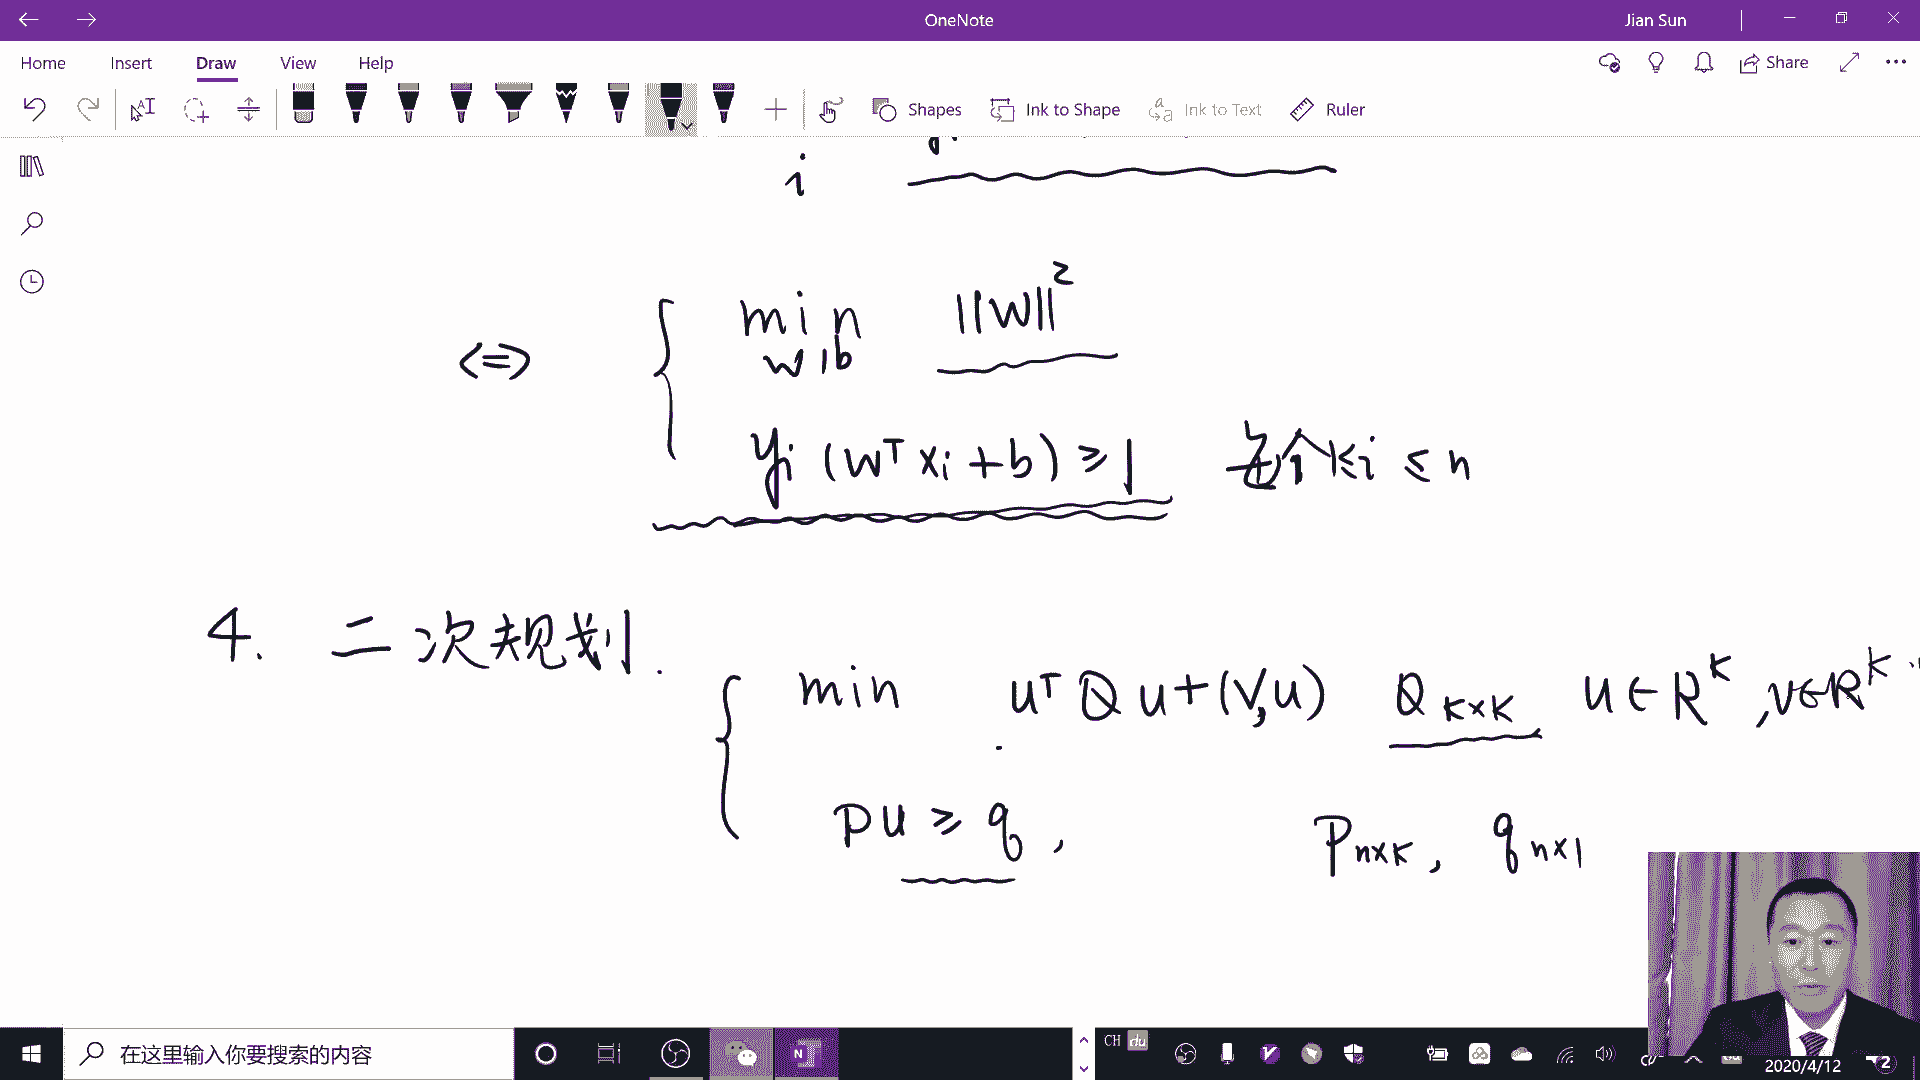 OneNote
Jian Sun
Home Insert Draw View Help
Share
Shapes Ink to Shape Ink to Text Ruler
i
<=> { min ||W||²
w, b
yi (Wᵀ xi + b) ≥ 1 每个 1≤i ≤ n
4. 二次规划.
{ min uᵀ Q u + (V,u) Q K×K u ∈ R^K , v∈R^K.
Pu ≥ q , P n×K , q n×1
在这里输入你要搜索的内容
CH du
2020/4/12
2